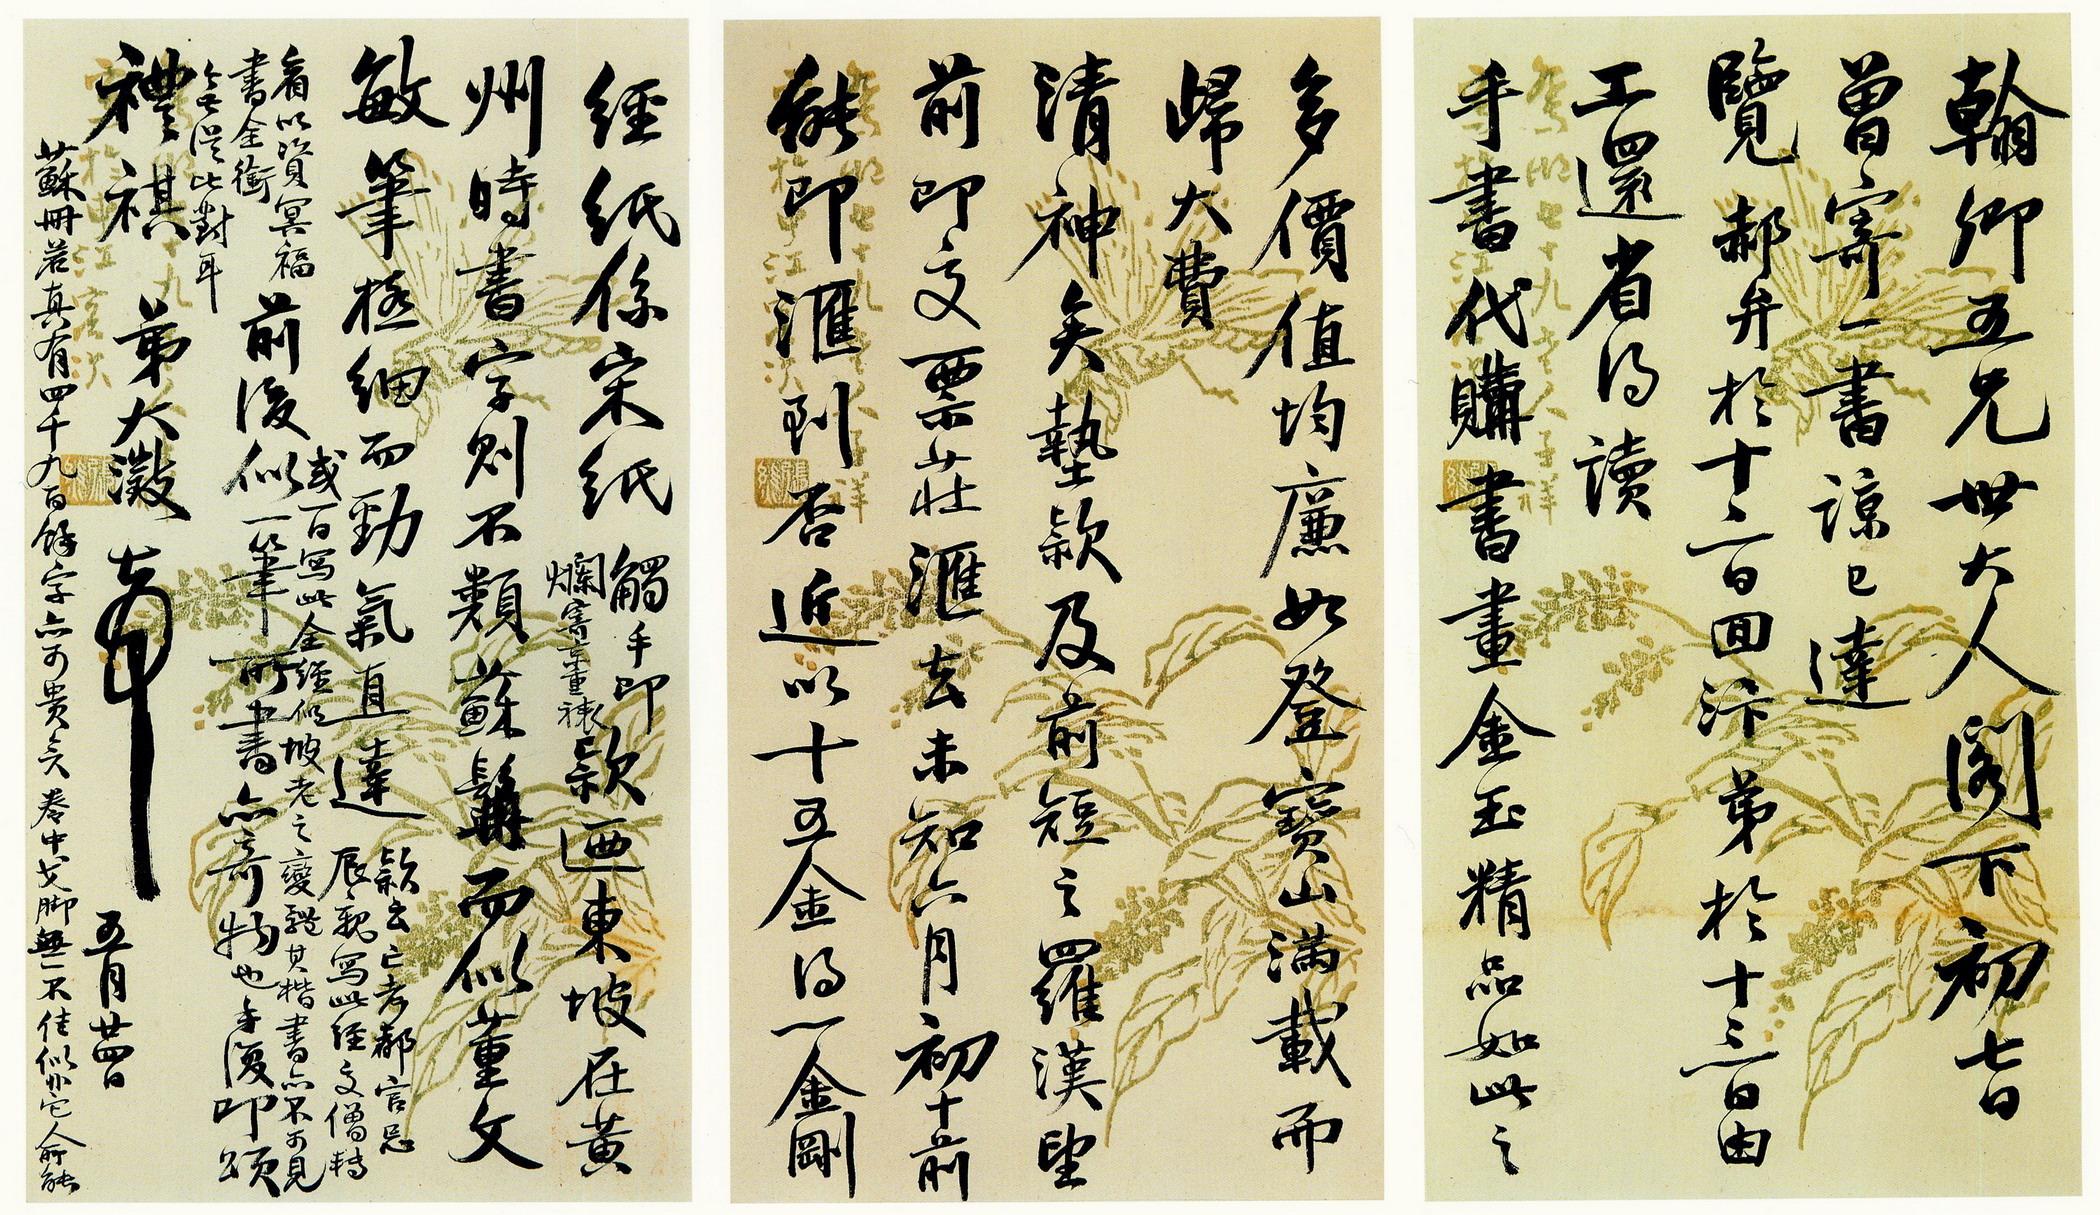 翰卿五兄世大人閣下初七日
曾寄一書諒已達
覽郝弁於十二日回汴弟於十三日由
工還省得讀
手書代購書畫金玉精品如此之
多價值均廉如登寶山滿載而
歸大費
清神矣墊款及前短之羅漢望
前即交票莊滙去未知六月初十前
能即滙到否近以十五金得一金剛
經紙係宋紙觸手即
爛寄京重裱款迺東坡在黃
州時書字則不類蘇髯而似董文
敏筆極細而勁氣直達款云亡考都官忌
辰親寫此經文僧轉
或百寫此全經似坡老之變體其楷書亦不可見
前後似一筆所書亦奇物也手復叩頌
看以資冥福
書全銜
從此對耳
禮祺 弟大澂
五月廿四日
蘇冊若真有四千九百餘字亦可貴矣卷中戈脚無一不佳似非它人所能